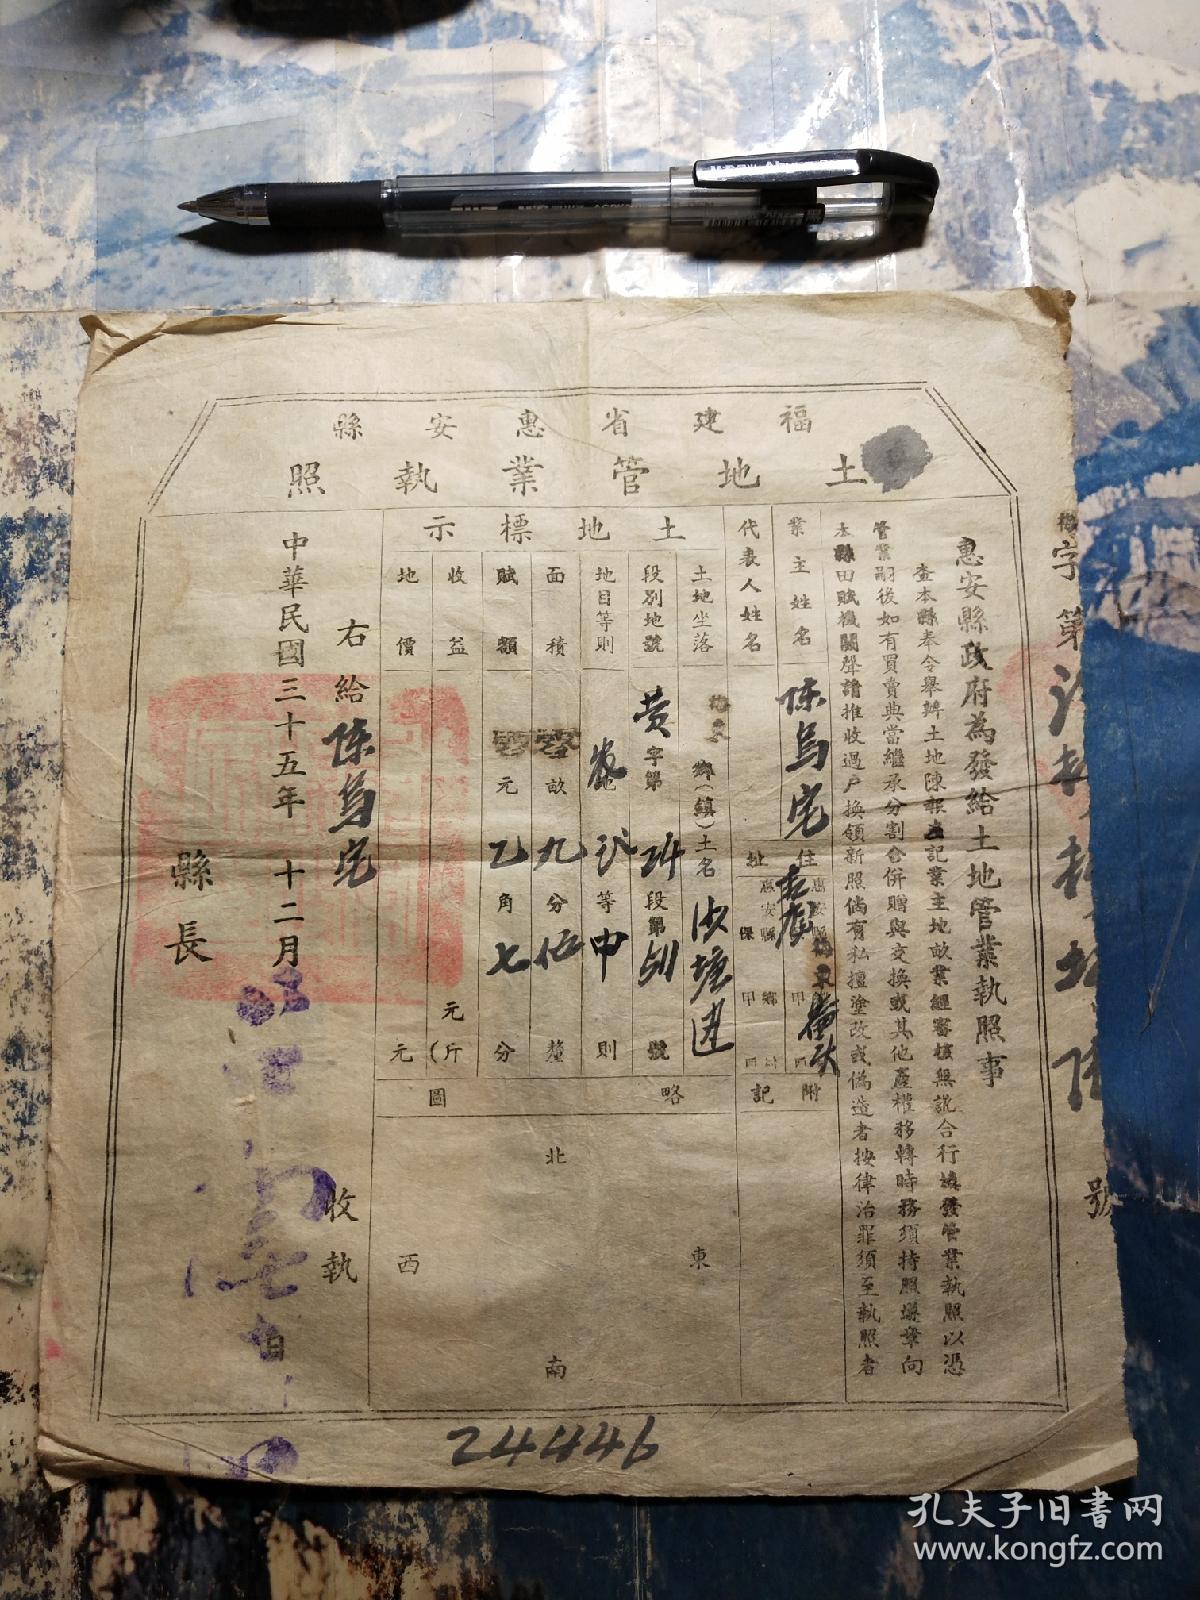 福建省惠安縣
土地管業執照
惠安縣政府為發給土地管業執照事
查本縣奉令舉辦土地陳報登記業主地畝業經審核無訛合行填發管業執照以憑
管業嗣後如有買賣典當繼承分割合併贈與交換或其他產權移轉時務須持照攜章向
本縣田賦機關聲請推收過戶換領新照倘有私擅塗改或偽造者按律治罪須至執照者
業主姓名 陈烏宅
住址 惠安縣 鄉 保 甲
代表人姓名
附記
土地標示
土地坐落 鄉(鎮)土名
段別地號 黄字第 段第 號
地目等則 農地 等中則
面積 零畝九分伍釐
賦額 零元乙角七分
收益 元(斤
地價 元
略圖
北
東
西
南
右給陈烏宅收執
中華民國三十五年十二月 日
縣長
字第 號
24446
孔夫子旧书网
www.kongfz.com